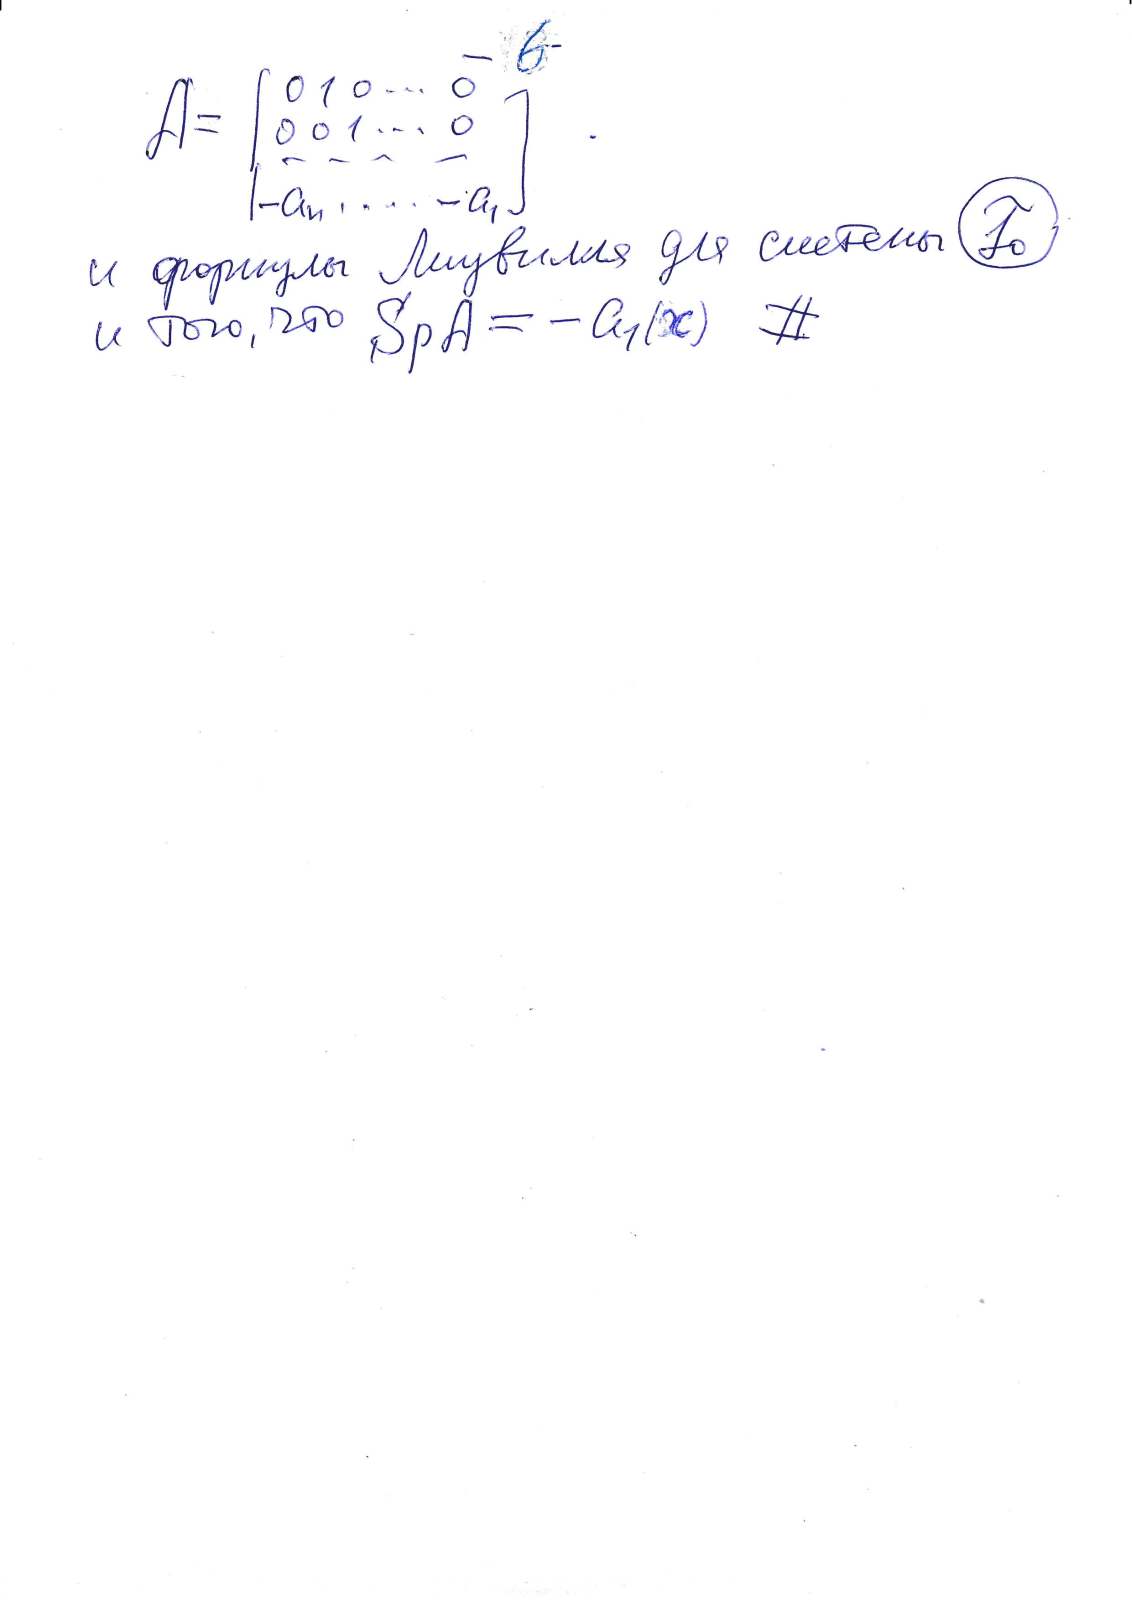 - 6 -
A = [ 0 1 0 ... 0
0 0 1 ... 0
- - - -
-aₙ ..... -a₁ ]
и формулы Лиувилля для системы (Т₀)
и того, что Sp A = - a₁(x) #